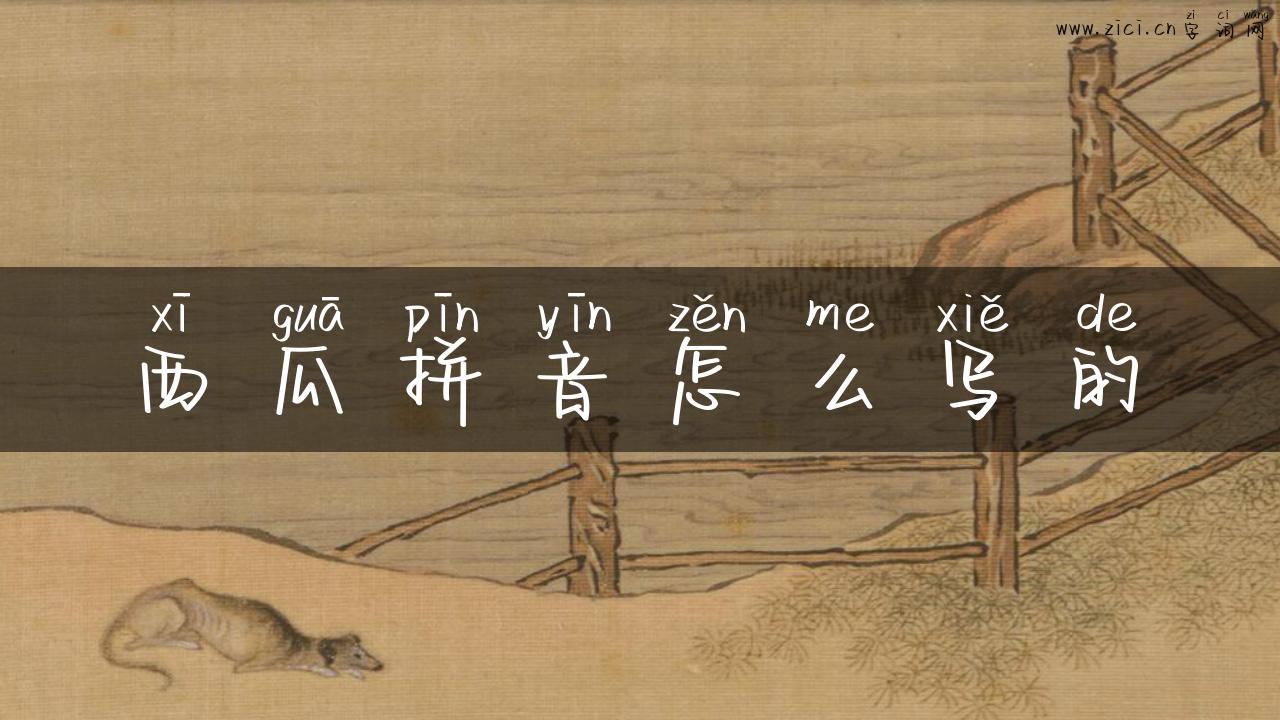 zi ci wang
www.zici.cn 字词网
xī guā pīn yīn zěn me xiě de
西瓜拼音怎么写的